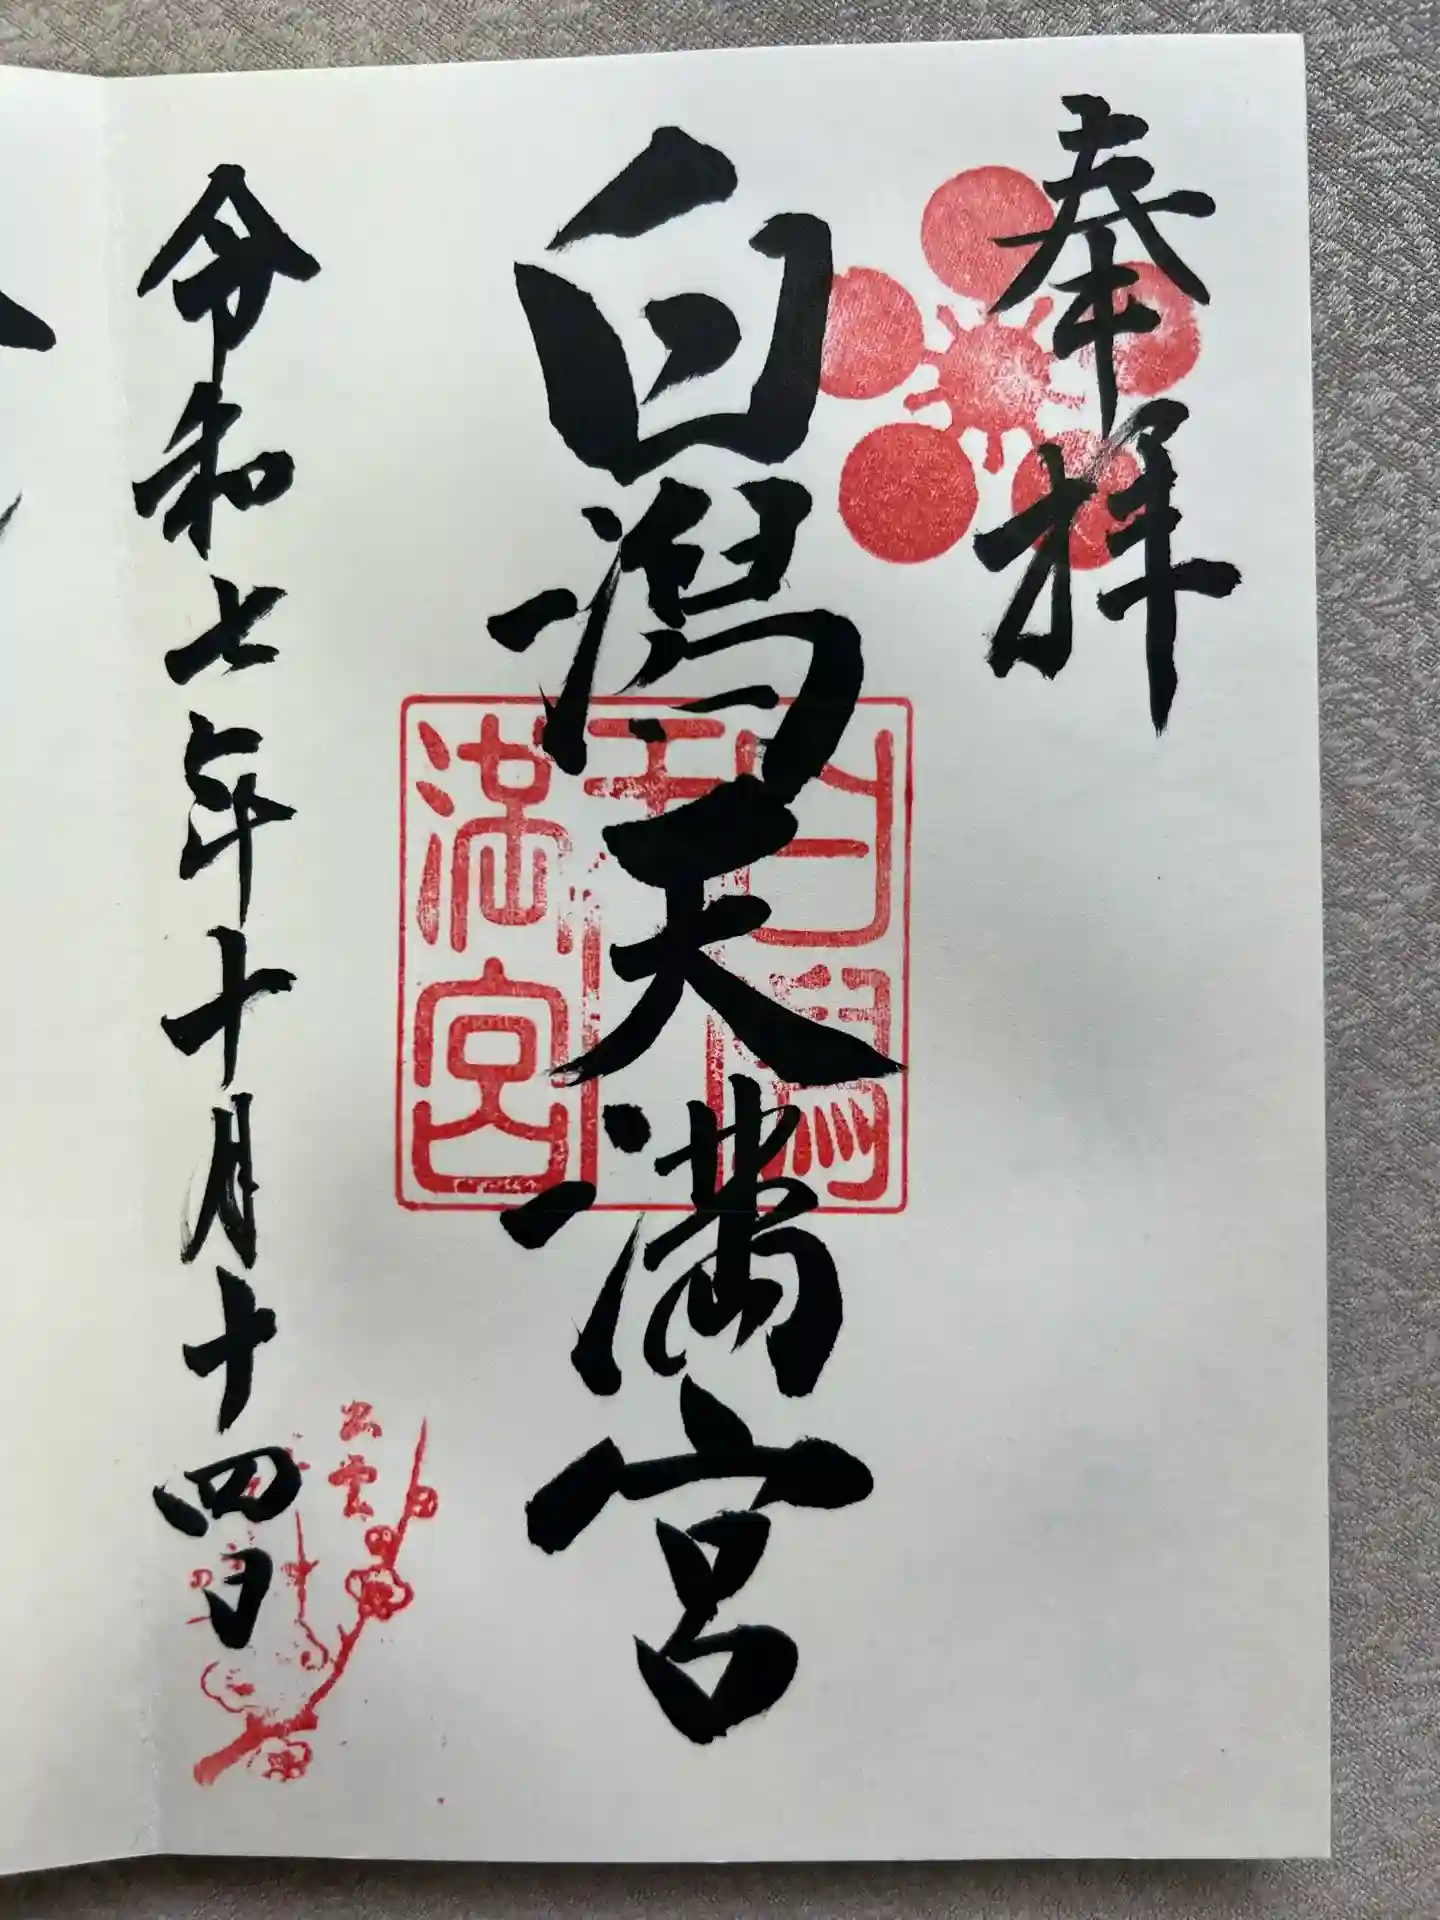 奉拝
白潟天満宮
白潟天満宮
令和七年十月十四日
出雲